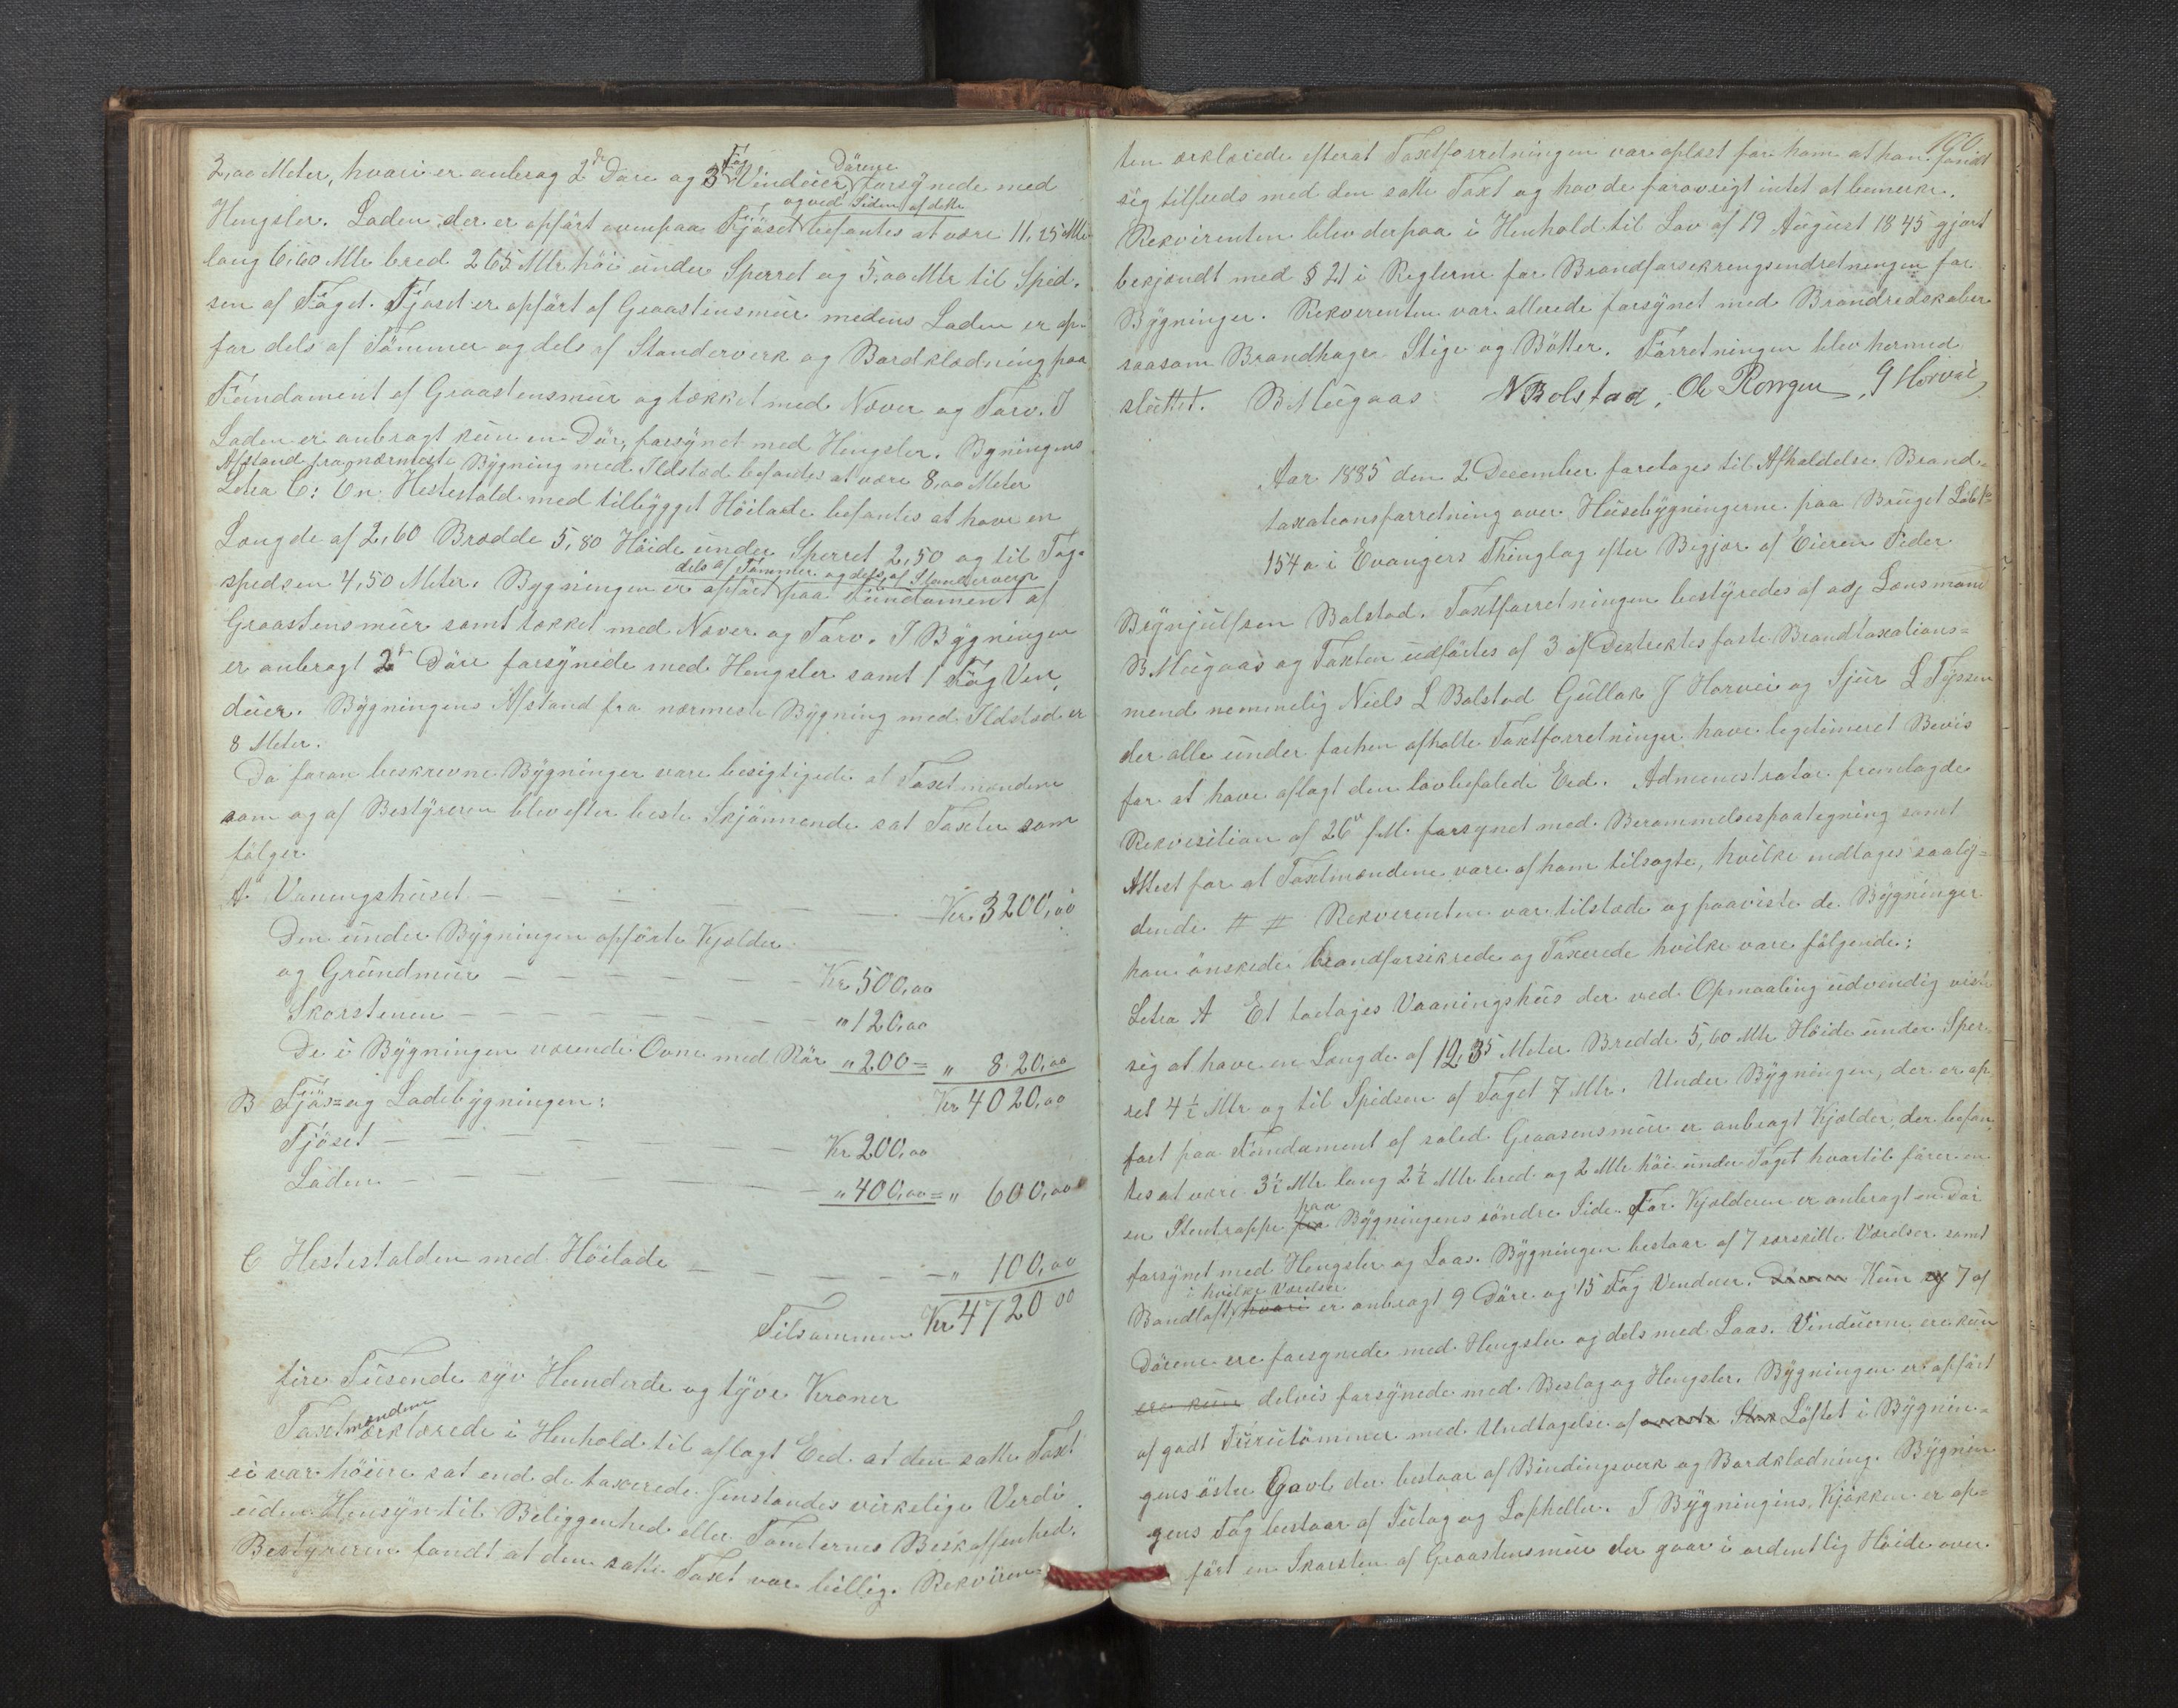 2,00 Meter, hvori er anbrag 2de Döre og 3 Fag Vinduer Dörene forsynede med
Hengsler. Laden der er opfört ovenpaa Fjöset og ved Siden af dette befantes at være 11,25 Mtr
lang 6,60 Mtr bred 265 Mtr höi under Sperret og 5,00 Mtr til Spid-
sen af Taget. Fjöset er opfört af Graastensmur medens Laden er op-
för dels af Tömmer og dels af Standerverk og Bordklædning paa
Fundament af Graastensmur og tækket med Næver og Tørv. I
Laden er anbragt kun en Dör, forsynet med Hengsler. Bygningens
Afstand fra nærmeste Bygning med Ildsted befandes at være 8,00 Meter
Letra C: En Hestestald med tilbygget Höilade befantes at have en
Længde af 2,60 Brædde 5,80 Höide under Sperret 2,50 og til Tag-
spedsen 4,50 Meter. Bygningen er opfört dels af Tömmer og dels af Standerverk paa Fundament af
Graastensmur samt tækket med Næver og Tørv. I Bygningen
er anbragt 2de Döre forsynede med Hengsler samt 1 Fag Ven
duer. Bygningens Afstand fra nærmeste Bygning med Ildsted er
8 Meter.
Da foran beskrevne Bygninger vare besigtigede af Taxtmændene
som og af Bestyreren blev efter beste Skjönnende sat Taxter som
fölger
A. Vaningshuset — — — — — — Kr 3200,00
Den under Bygningen opförte Kjælder
og Grundmur — — — — — Kr 500,00
Skorstenen — — — — — — " 120,00
De i Bygningen værende Ovne med Rör " 200 = " 820,00
Kr 4020,00
B Fjös= og Ladebygningen:
Fjöset — — — — — — Kr 200,00
Laden — — — — — — " 400,00 = " 600,00
C Hestestalden med Höilade — — — — — " 100,00
Tilsammen Kr 4720 00
fire Tusende syv Hundrde og tyve Kroner
Taxtmændene erklærede i Henhold til aflagt Eed at den satte Taxt
ei var höiere sat end de taxerede Jenstandes virkelige Verdi
uden Hensyn til Beliggenhed eller Tomternes Beskaffenhed.
Bestyreren fandt at den satte Taxt var billig. Rekviren
160.
ten erklærede efterat Taxtforretningen var oplæst for ham at han fandt
sig tilfreds med den satte Taxt og havde forövrigt intet at bemerke.
Rekvirenten blev derpaa i Henhold til Lov af 19 August 1845 gjort
bekjendt med § 21 i Reglerne for Brandforsekrengsendretningen for
Bygninger. Rekverenten var allerede forsynet med Brandredskaber
saasom Brandhage Stige og Bötter. Forretningen blev hermed
sluttet. B Mugaas N Bolstad, Ole Rongen, G Horvei
Aar 1885 den 2 December foretages til Afholdelse Brand-
taxationsforretning over Husebygningerne paa Bruget Löb No
154 a i Evangers Thinglag efter Begjær af Eieren Peder
Brynjulfsen Bolstad. Taxtforretningen bestyredes af adj Lensmand
B. Mugaas og Taxten udförtes af 3 af Destrektes faste Brandtaxations=
mend nemmelig Niels L Bolstad Gullak J Horvei og Sjur L Tyssen
der alle under forhen afholte Taxtforretninger have legetimeret Bevis
for at have aflagt den lovbefalede Eed. Admenestrator fremlagde
Rekvisition af 26de f.M. forsynet med Berammelsespaategning samt
Attest for at Taxtmændene vare af ham tilsagte, hvilke indtages saaly=
dende # # Rekverenten var tilstæde og paaviste de Bygninger
han önskede brandforsikrede og Taxerede hvilke vare fölgende:
Letra A Et toetages Vaaningshus der ved Opmaaling udvendig viste
sig at have en Længde af 12,35 Meter Bredde 5,60 Mtr Höide under Sper-
ret 4½ Mtr og til Spidsen af Taget 7 Mtr. Under Bygningen, der er op
fört paa Fundament af soled Graasensmur er anbragt Kjælder, der befan
tes at være 3½ Mtr lang 2½ Mtr bred og 2 Mtr höi under Taget hvortil förer en
en Stentrappe fra paa Bygningens söndre Side. For Kjælderen er anbragt en Dör
forsynet med Hengsler og Laas. Bygningen bestaar af 7 særskilte Værelser samt
Bandloft, hvori i hvilke Værelser er anbragt 9 Döre og 15 Fag Venduer. Kun 7 af
Dörene ere forsynede med Hengsler og dels med Laas. Vinduerne ere kun
ere kun delvis forsynede med Beslag og Hengsler. Bygningen er opfört
af godt Furutömmer med Undtagelse af Löftet i Bygnin-
gens östre Gavl der bestaar af Bindingsverk og Bordklædning. Bygnin
gens Tag bestaar af Sutag og Lapheller. I Bygningens Kjökken er op=
fört en Skorsten af Graastensmur der gaar i ordentlig Höide over